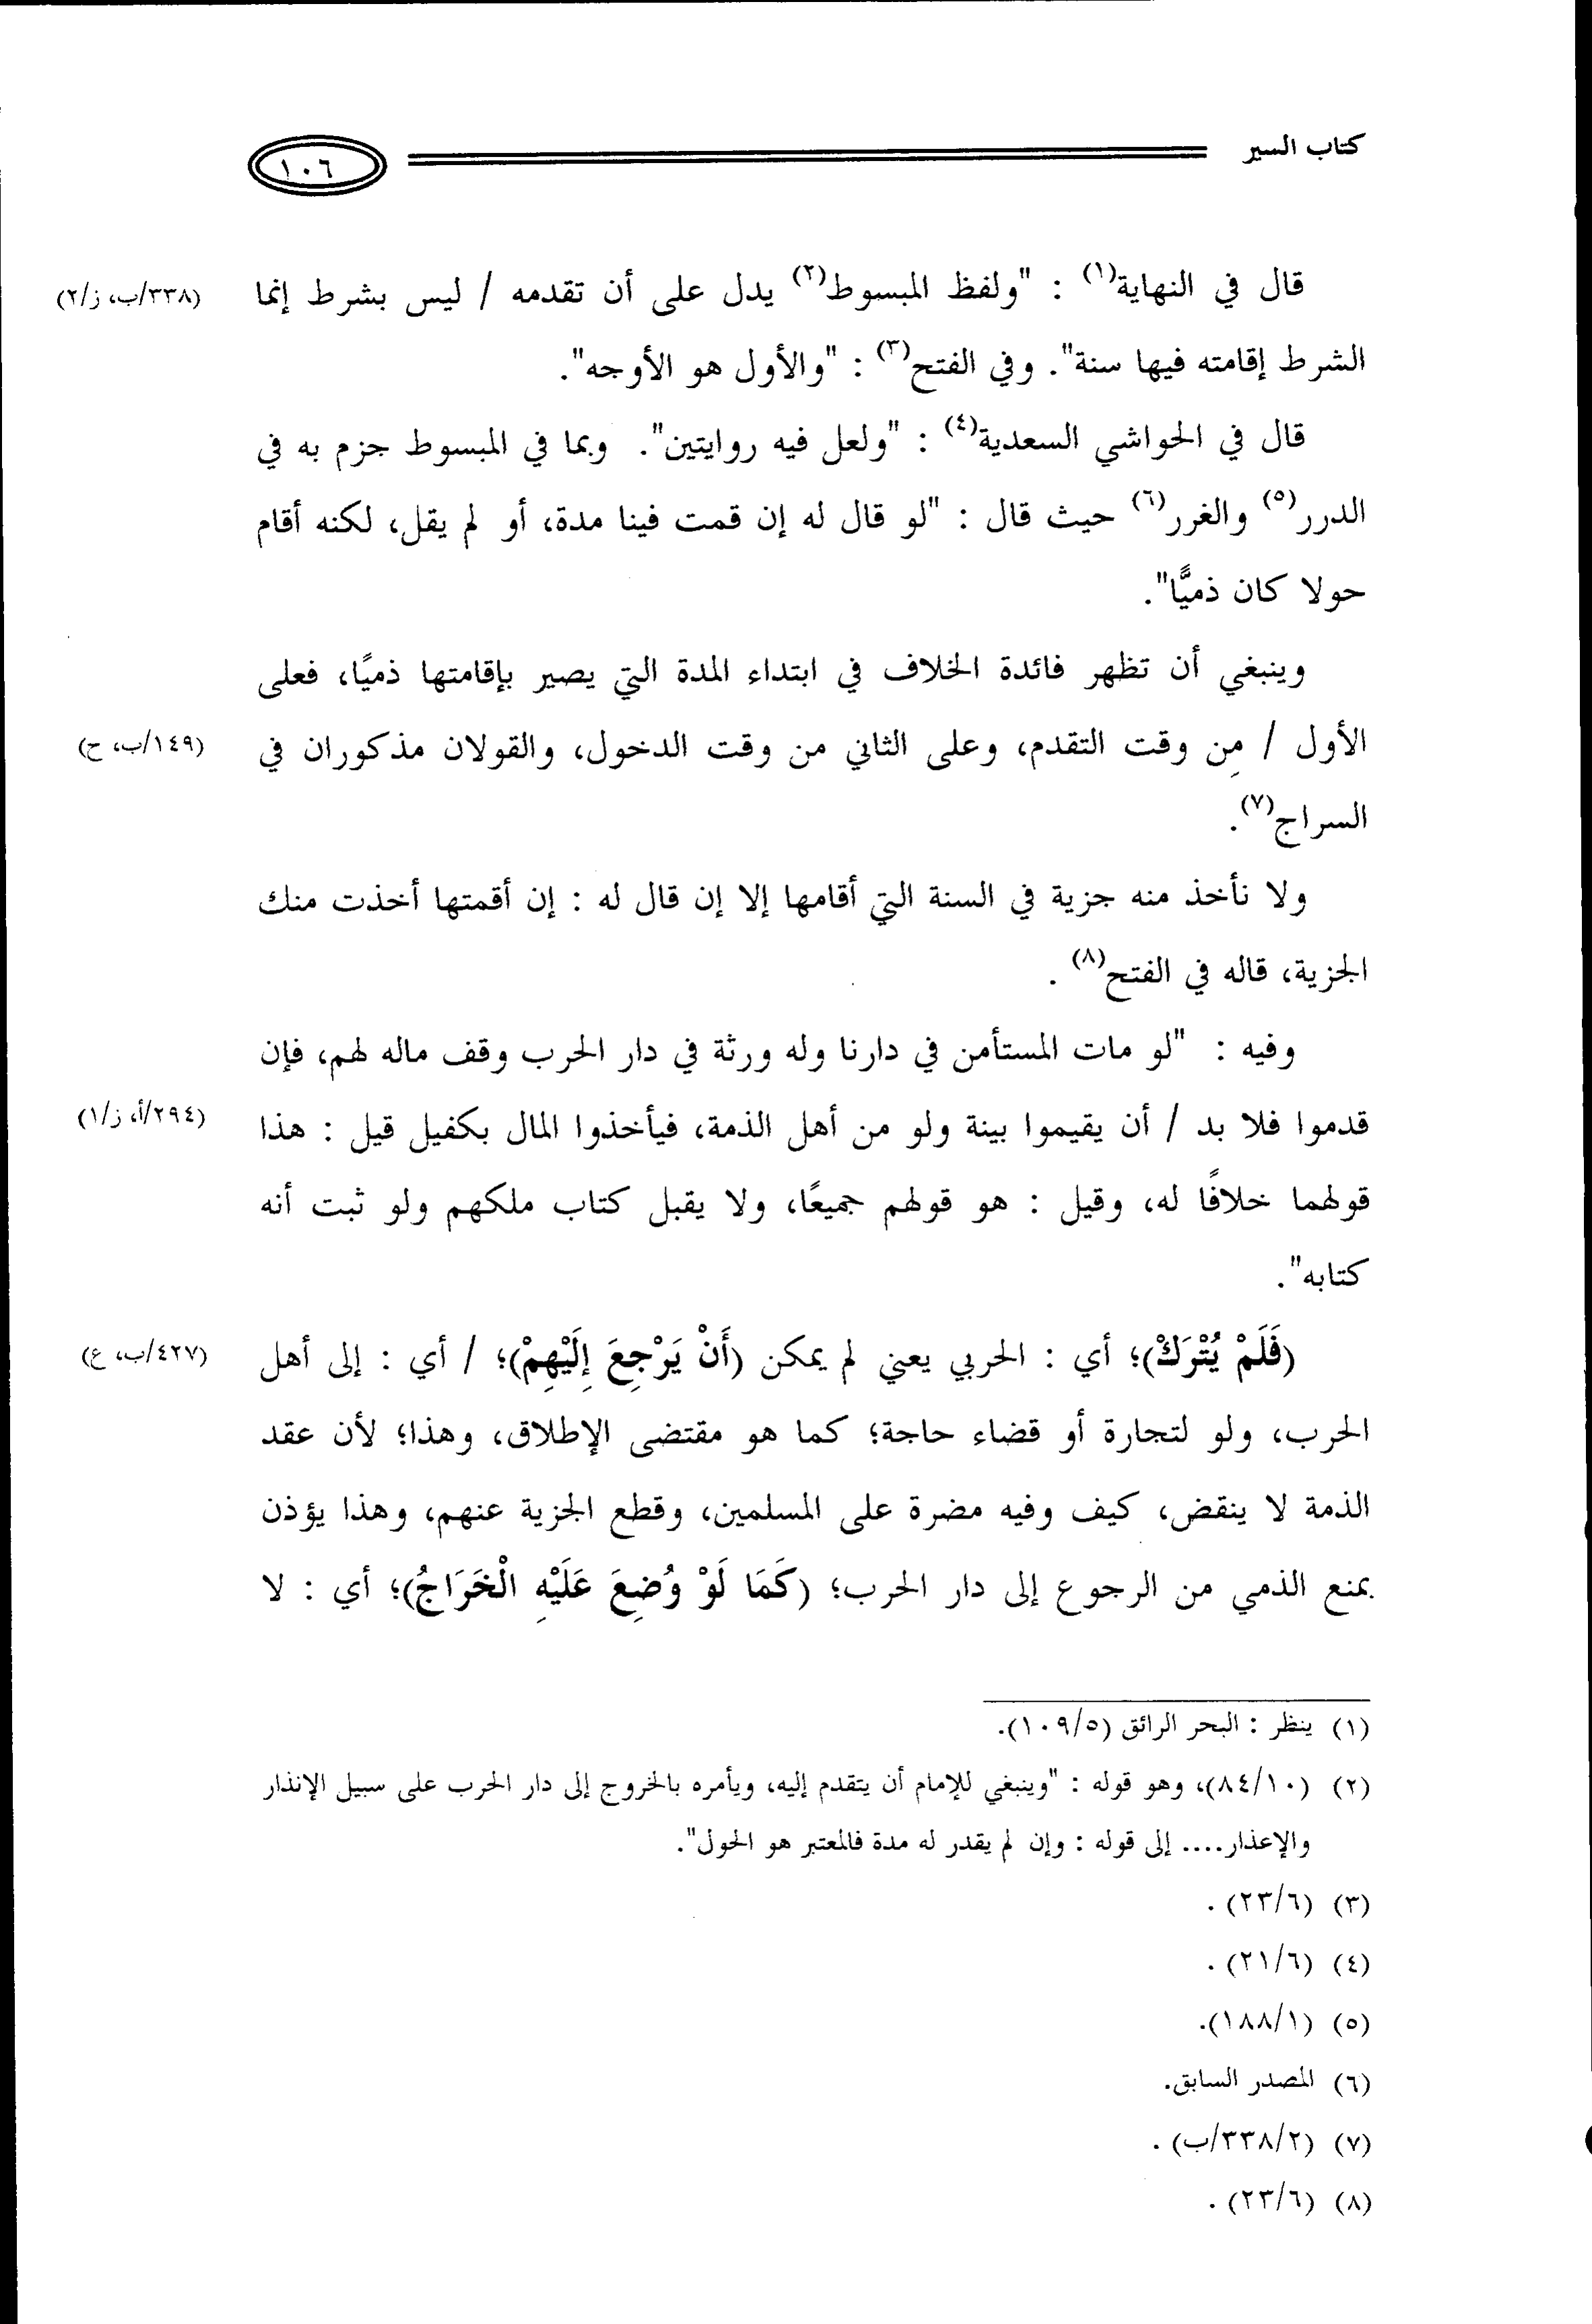 كتاب السير
١٠٦
قال في النهاية(١) : "ولفظ المبسوط(٢) يدل على أن تقدمه / ليس بشرط إنما
(٣٣٨/ب، ز/٢)
الشرط إقامته فيها سنة". وفي الفتح(٣) : "والأول هو الأوجه".
قال في الحواشي السعدية(٤) : "ولعل فيه روايتين". وبما في المبسوط جزم به في
الدرر(٥) والغرر(٦) حيث قال : "لو قال له إن قمت فينا مدة، أو لم يقل، لكنه أقام
حولا كان ذميًّا".
وينبغي أن تظهر فائدة الخلاف في ابتداء المدة التي يصير بإقامتها ذميًا، فعلى
الأول / مِن وقت التقدم، وعلى الثاني من وقت الدخول، والقولان مذكوران في
(١٤٩/ب، ح)
السراج(٧).
ولا نأخذ منه جزية في السنة التي أقامها إلا إن قال له : إن أقمتها أخذت منك
الجزية، قاله في الفتح(٨) .
وفيه : "لو مات المستأمن في دارنا وله ورثة في دار الحرب وقف ماله لهم، فإن
قدموا فلا بد / أن يقيموا بينة ولو من أهل الذمة، فيأخذوا المال بكفيل قيل : هذا
(٢٩٤/أ، ز/١)
قولهما خلافًا له، وقيل : هو قولهم جميعًا، ولا يقبل كتاب ملكهم ولو ثبت أنه
كتابه".
(فَلَمْ يُتْرَكْ)؛ أي : الحربي يعني لم يمكن (أَنْ يَرْجِعَ إِلَيْهِمْ)؛ / أي : إلى أهل
(٤٢٧/ب، ع)
الحرب، ولو لتجارة أو قضاء حاجة؛ كما هو مقتضى الإطلاق، وهذا؛ لأن عقد
الذمة لا ينقض، كيف وفيه مضرة على المسلمين، وقطع الجزية عنهم، وهذا يؤذن
بمنع الذمي من الرجوع إلى دار الحرب؛ (كَمَا لَوْ وُضِعَ عَلَيْهِ الْخَرَاجُ)؛ أي : لا
(١) ينظر : البحر الرائق (١٠٩/٥).
(٢) (٨٤/١٠)، وهو قوله : "وينبغي للإمام أن يتقدم إليه، ويأمره بالخروج إلى دار الحرب على سبيل الإنذار
والإعذار.... إلى قوله : وإن لم يقدر له مدة فالمعتبر هو الحول".
(٣) (٢٣/٦) .
(٤) (٢١/٦) .
(٥) (١٨٨/١).
(٦) المصدر السابق.
(٧) (٣٣٨/٢/ب) .
(٨) (٢٣/٦) .